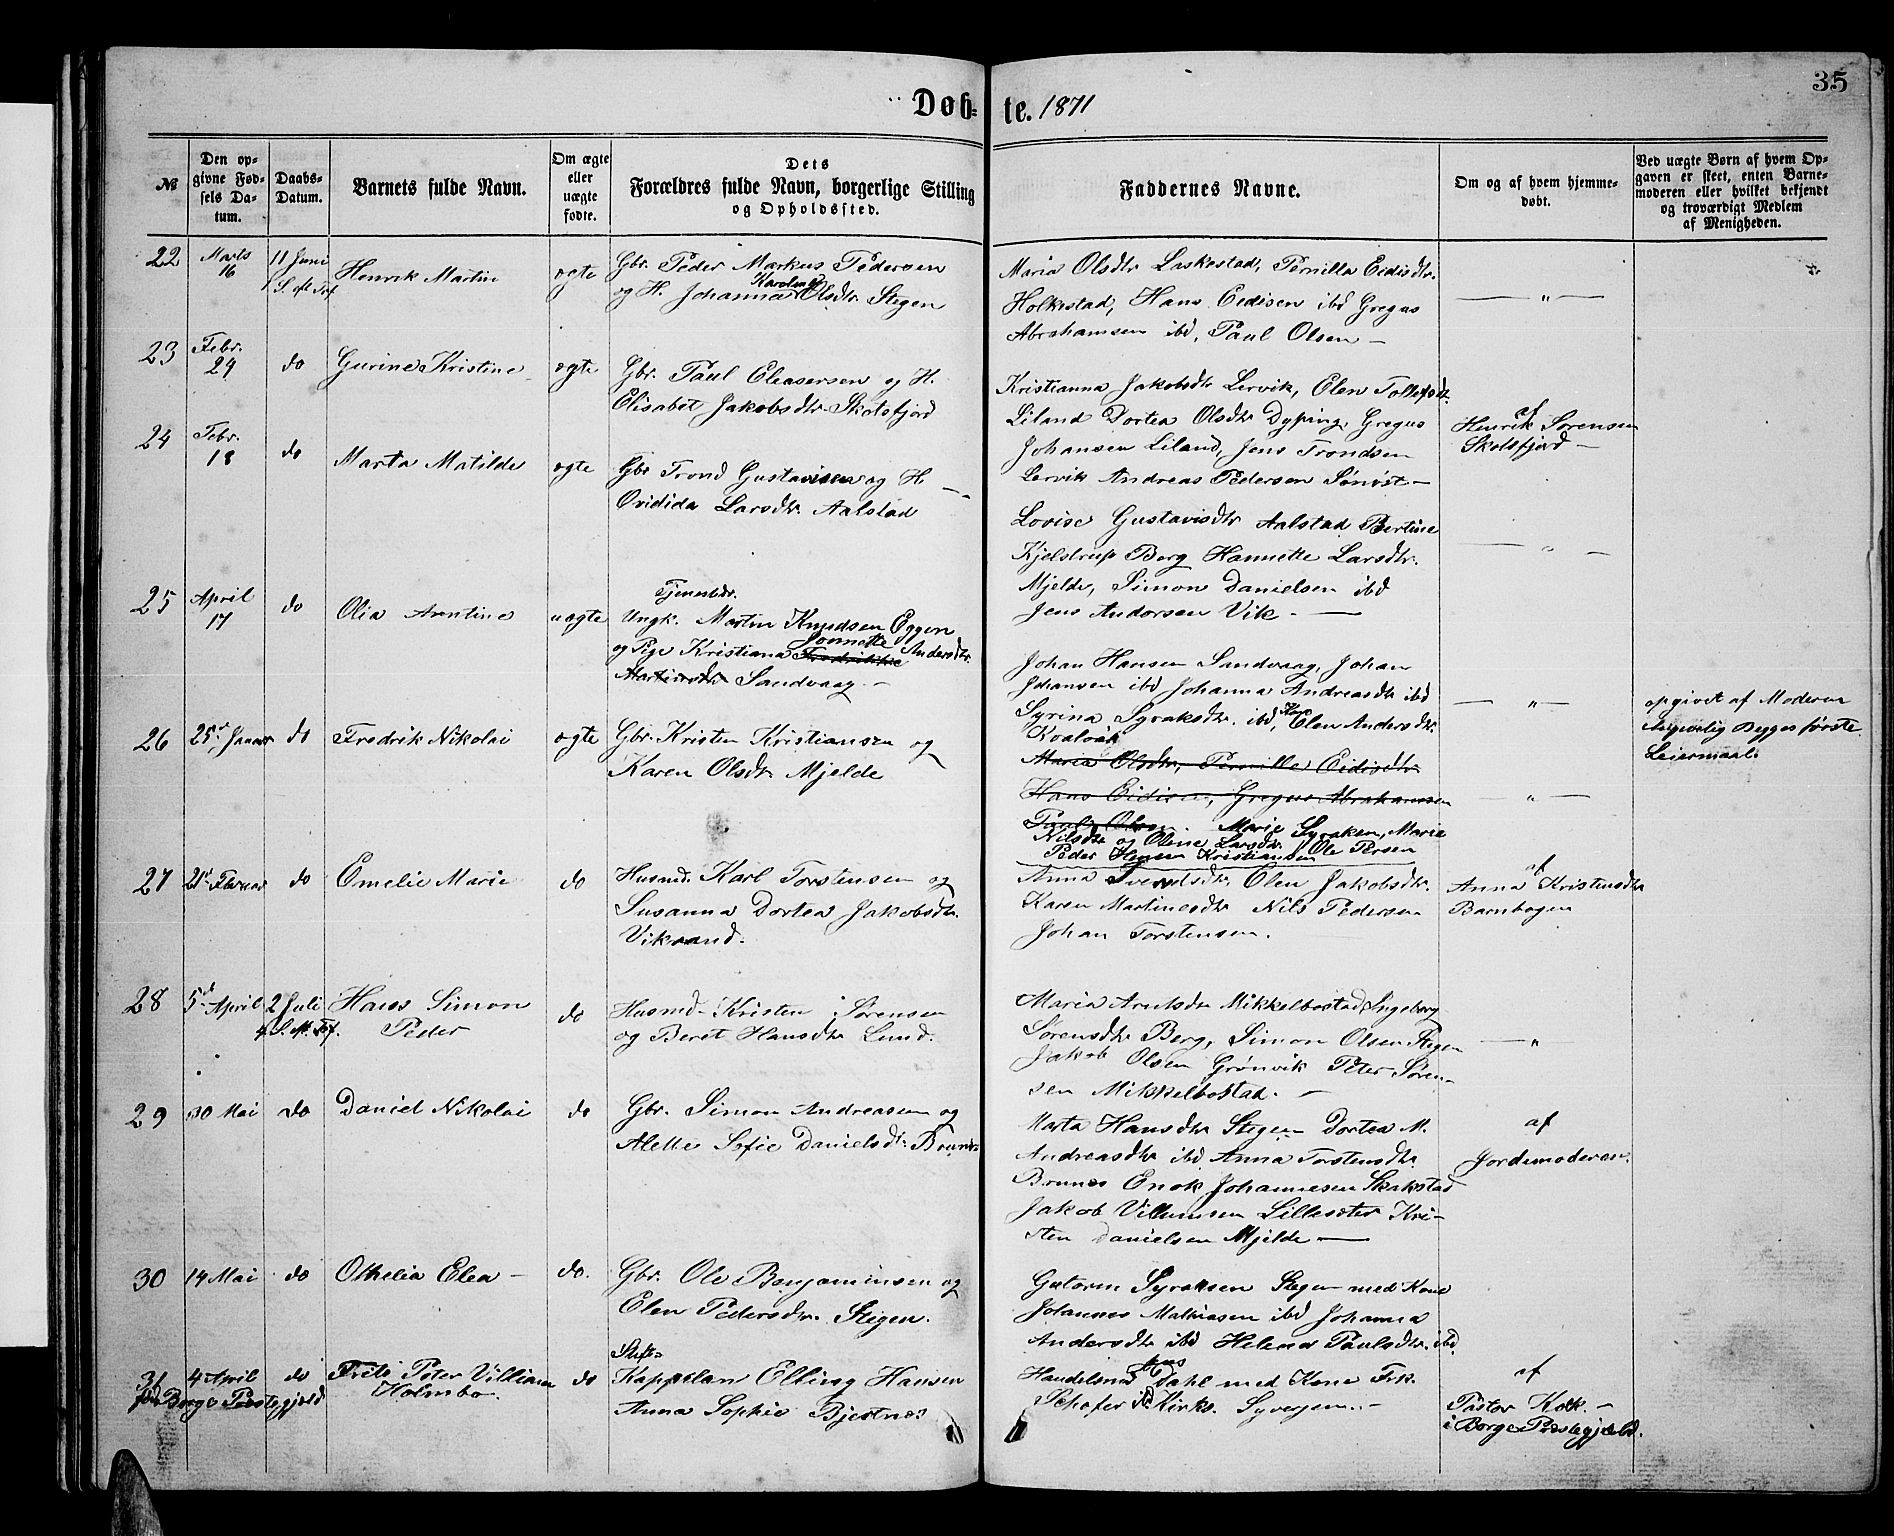 35
Døb= te. 1871
№
Den op=
givne Fød=
sels Da=
tum.
Daabs=
Datum.
Barnets fulde Navn.
Om ægte
eller
uægte
fødte.
Dets
Forældres fulde Navn, borgerlige Stilling
og Opholdssted.
Faddernes Navne.
Om og af hvem hjemme=
døbt.
Ved uægte Børn af hvem Op=
gaven er skeet, enten Barne=
moderen eller hvilket bekjendt
og troværdigt Medlem
af Menigheden.
22
Marts
16
11 Juni
1 S. eft Tref.
Henrik Martin
ægte
Gbr. Peder Markus Pedersen
Karolina
og H. Johanna Olsdtr Stegen
Maria Olsdtr Laskestad, Pernilla Eidisdtr.
Holkestad, Hans Eidisen ibd Gregus
Abrahamsen ibd, Paul Olsen —
— " —
23
Febr.
24
do
Gurine Kristine
ægte
Gbr. Paul Eleasersen og H.
Elisabet Jakobsdtr Skotsfjord
Kristianna Jakobsdtr Lervik, Elen Tollefsdtr.
Liland Dortea Olsdtr Dyping, Gregus
Johansen Liland, Jens Trondsen
Lervik Andreas Pedersen Sønvist —
af
Henrik Sørensen
Skotsfjord —
24
Febr.
18
do
Marta Matilde
ægte
Gbr Trond Gustavisen og H. —
Ovidida Larsdtr. Aalstad
Lovise Gustavisdtr Aalstad Bertine
Kjelstrup Borg Hannette Larsdtr.
Mjelde, Simon Danielsen ibd
Jens Andorsen Vik —
— " —
25
April
17
do
Olia Arntine
uægte
Tjenestdr.
Ungk. Martin Knudsen Eggen
Jonnette
og Pige Kristiana Fredrikke Andersdtr.
Martinsdtr Sandvaag —
Johan Hansen Sandvaag, Johan
Johansen ibd Johanna Andreasdtr ibd
Syrina Syraksdtr. ibd, Kone Elen Andersdtr
Kvalvik
— " —
opgivet af Moderen
Angivelig Begges første
Leiermaal.
26
25de Januar
do
Fredrik Nikolai
ægte
Gbr. Kristen Kristiansen og
Karen Olsdtr Mjelde
Maria Olsdtr, Pernille Eidisdtr
Hans Eidisen, Gregus Abrahamsen
Paul Olsen Marie Syraksen, Maria
Nilsdtr og Oline Larsdtr Ole Persen
Peder Hansen Kristiansen
— " —
27
21de Februar
do
Emelie Marie
do
Husmd. Karl Torstensen og
Susanna Dortea Jakobsdtr.
Viksand.
Anna Svendsdtr. Elen Jakobsdtr.
Karen Martinesdtr Nils Pedersen
Johan Torstensen.
af
Anna Kristensdtr
Barnhagen
28
5te April
2 Juli
4 S. eft. Tref.
Hans Simon
Peder
do
Husmd. Kristen Sørensen
og Beret Hansdtr Lund.
Maria Arntsdtr Mikkelbostad, Ingeborg
Sørensdtr Berg, Simon Olsen Stegen
Jakob Olsen Grønvik Peter Søren-
sen Mikkelbostad. —
— "
29
30 Mai
do
Daniel Nikolai
do
Gbr. Simon Andreasen og
Alette Sofie Danielsdt. Brunes
Marta Hansdtr Stegen Dortea M.
Andreasdtr ibd Anna Torstensdtr.
Brunes Enok Johannesen Skakstad
Jakob Villumsen Lillesæter Kri-
sten Danielsen Mjelde —
af
Jordemoderen.
30
14 Mai
do
Othelia Elea —
do.
Gbr. Ole Benjaminsen og
Elen Pedersdtr. Stegen.
Gutorm Syraksen Stegen med Kone
Johannes Mathiasen ibd Johanna
Andersdtr ibd Helena Paulsdtr. ibd.
31
4 April
do
Frits Peter Villiam
Holmbo
fød Borge Præstegjeld
do
Stifts=
Kappelan Elling Hansen
Anna Sophie Bjestnes
Handelsmd Dahl med Kone Frk.
Schøfer ibd Kirks. Syversen. —
af
Pastor Kolk. —
i Borge Præstegjæld.